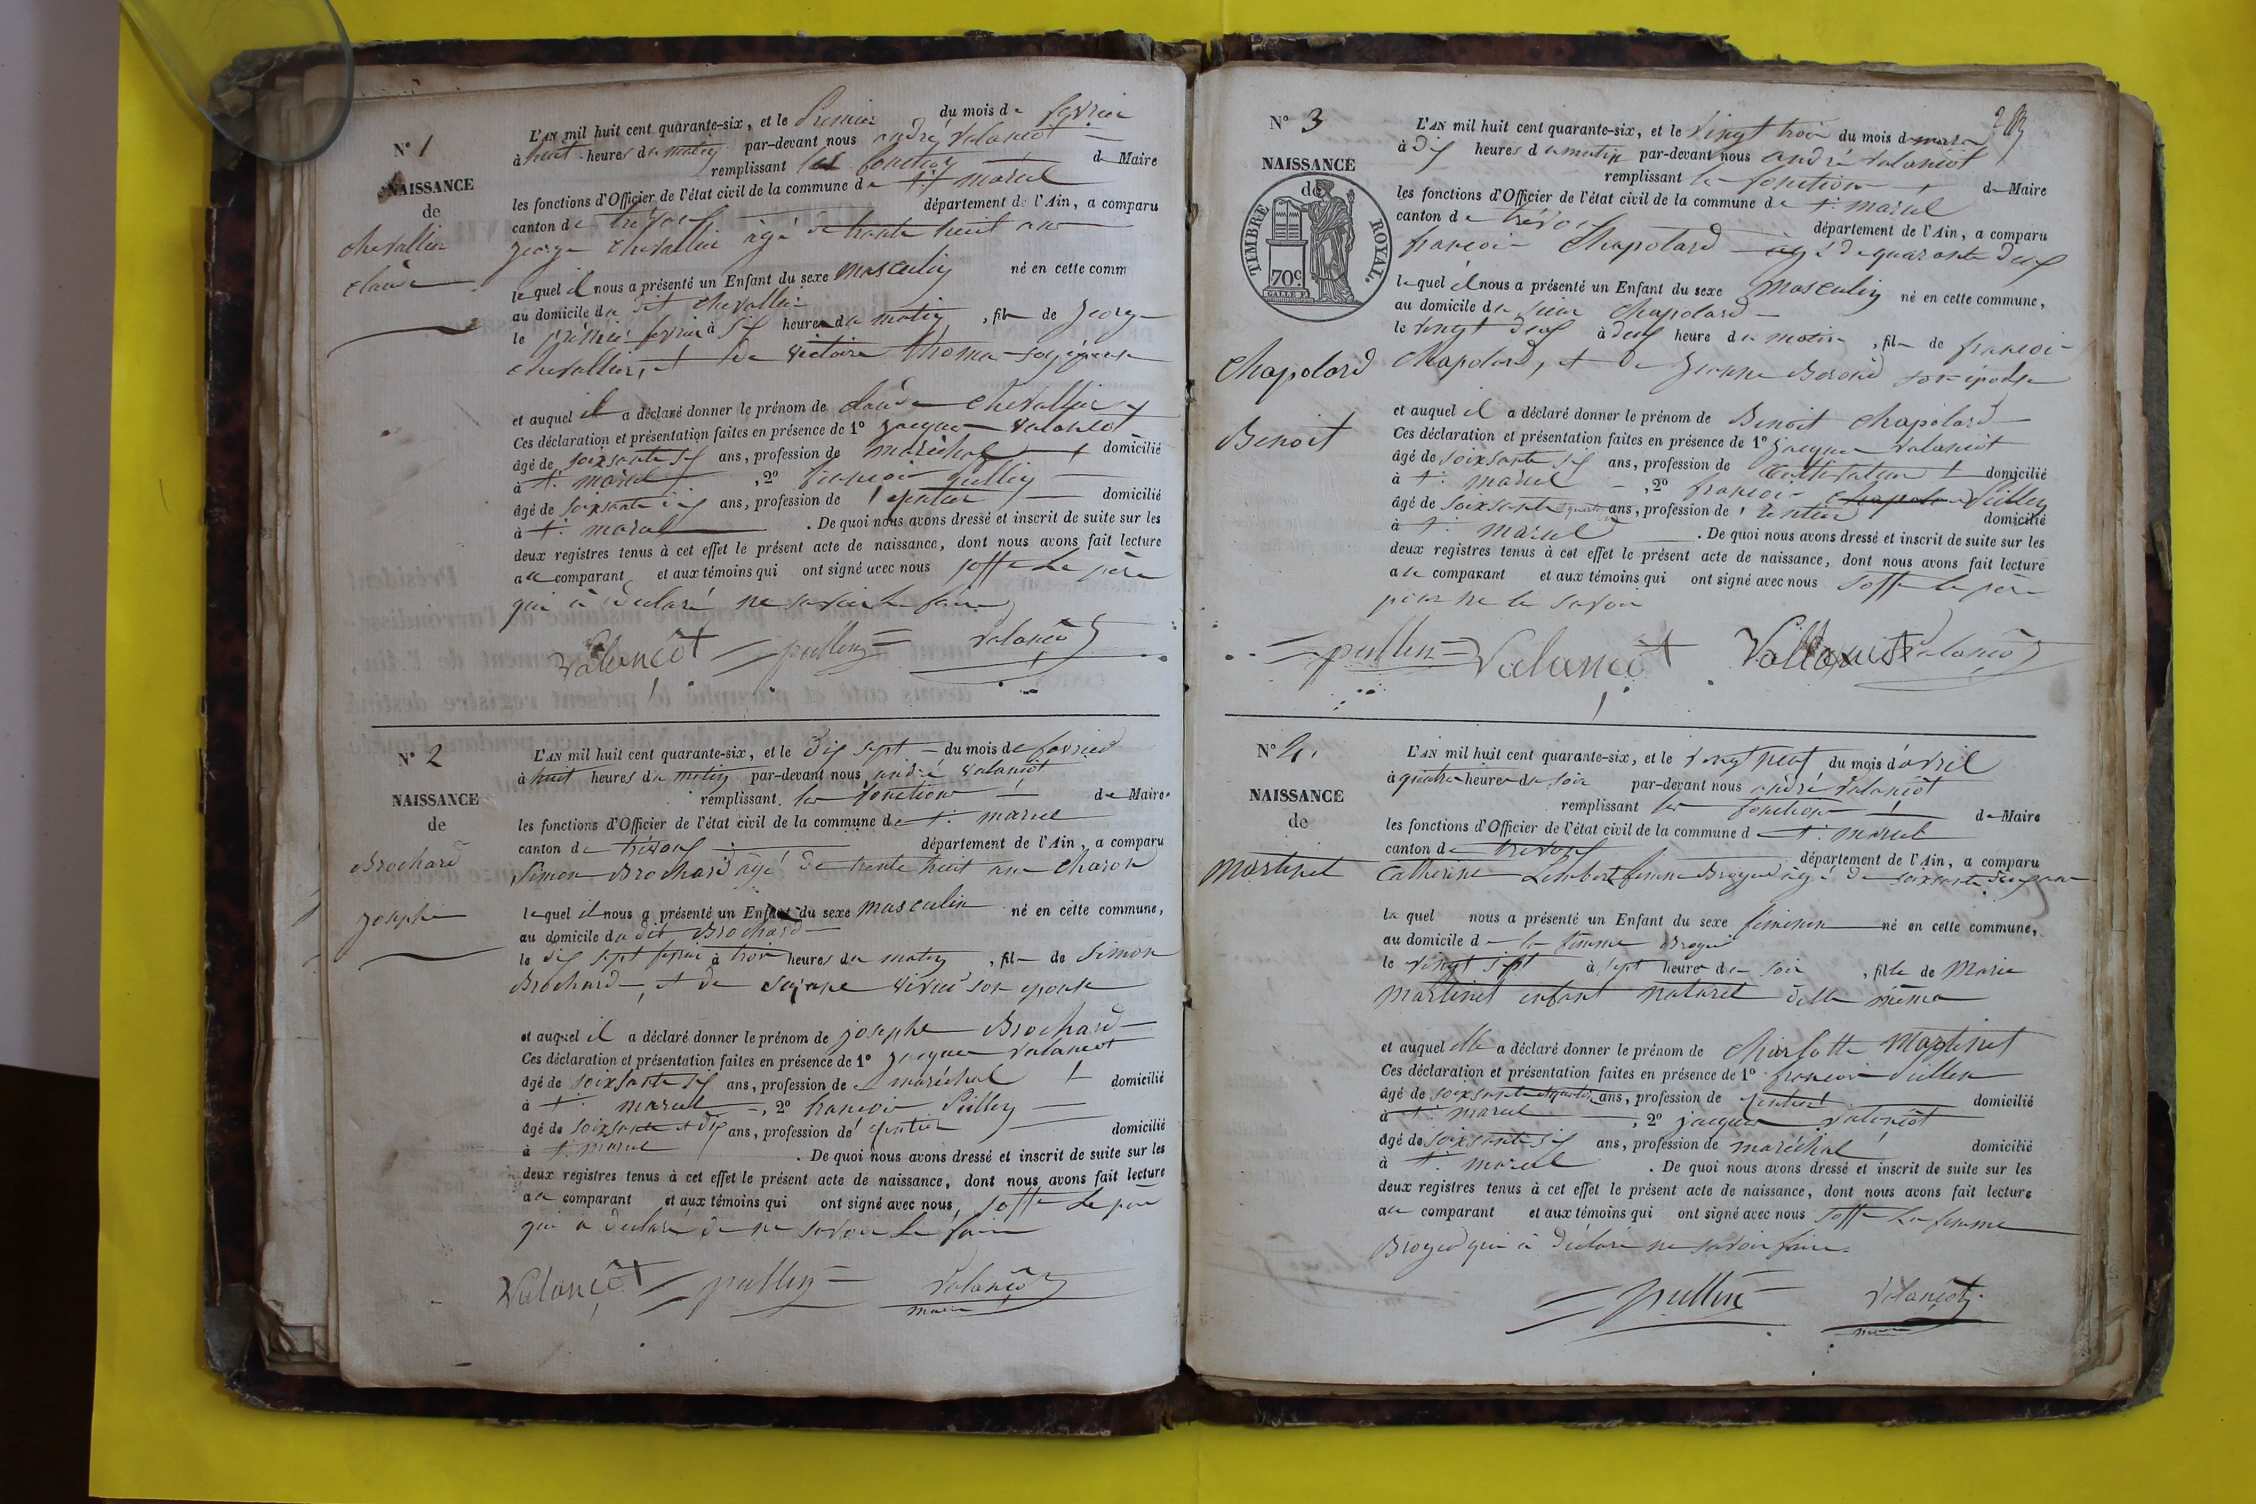 N° 1
NAISSANCE
de
chevallier
claude
L'AN mil huit cent quarante-six, et le Premier du mois de fevrier
à huit heures du matin par-devant nous andré Valanciot
remplissant les fonction de Maire
les fonctions d'Officier de l'état civil de la commune de St. marcel
canton de trévoux département de l'Ain, a comparu
george chevallier agé de trante huit ans
lequel il nous a présenté un Enfant du sexe masculin né en cette comm
au domicile du dit chevallier
le premier fevrier à six heures du matin, fils de george
chevallier, et de victoire thomas son épouse
et auquel il a déclaré donner le prénom de claude chevallier
Ces déclaration et présentation faites en présence de 1° jacques valanciot
âgé de soixsante six ans, profession de maréchal domicilié
à St. marcel, 2° francois pullin
âgé de soixsante dix ans, profession de rentier domicilié
à St. marcel. De quoi nous avons dressé et inscrit de suite sur les
deux registres tenus à cet effet le présent acte de naissance, dont nous avons fait lecture
au comparant et aux témoins qui ont signé avec nous soffe le père
qui à déclaré ne savoir le faire
Valanciot pullin Valanciot
N° 2
NAISSANCE
de
Brochard
josephe
L'AN mil huit cent quarante-six, et le dix sept du mois de fevrier
à huit heures du matin par-devant nous andré valanciot
remplissant les fonction de Maire
les fonctions d'Officier de l'état civil de la commune de St. marcel
canton de trévoux département de l'Ain, a comparu
Simon Brochard agé de trente huit ans charon
lequel il nous a présenté un Enfant du sexe masculin né en cette commune,
au domicile du dit Brochard
le dix sept fevrier à trois heures du matin, fils de Simon
Brochard, et de son epouse
et auquel il a déclaré donner le prénom de josephe Brochard
Ces déclaration et présentation faites en présence de 1° jacques valanciot
âgé de soixsante six ans, profession de maréchal domicilié
à St. marcel, 2° francois Pullin
âgé de soixsante et dix ans, profession de rentier domicilié
à St. marcel. De quoi nous avons dressé et inscrit de suite sur les
deux registres tenus à cet effet le présent acte de naissance, dont nous avons fait lecture
au comparant et aux témoins qui ont signé avec nous, soffe le père
qui a declaré de ne savoir le faire
Valanciot pullin Valanciot
maire
N° 3
NAISSANCE
de
TIMBRE ROYAL.
70c.
Chapolard
Benoit
L'AN mil huit cent quarante-six, et le vingt trois du mois de mars
à dix heures du matin par-devant nous andré valanciot
remplissant les fonction de Maire
les fonctions d'Officier de l'état civil de la commune de St. marcel
canton de trévoux département de l'Ain, a comparu
francois Chapolard agé de quarante deux
lequel il nous a présenté un Enfant du sexe masculin né en cette commune,
au domicile du sieur Chapolard
le vingt deux à deux heure du matin, fils de francois
Chapolard, et de jeanne son épouse
et auquel il a déclaré donner le prénom de Benoit chapolard
Ces déclaration et présentation faites en présence de 1° jacques valanciot
âgé de soixsante six ans, profession de cultivateur domicilié
à St. marcel, 2° francois Pullin
âgé de soixsante quatorze ans, profession de rentier domicilié
à St. marcel. De quoi nous avons dressé et inscrit de suite sur les
deux registres tenus à cet effet le présent acte de naissance, dont nous avons fait lecture
au comparant et aux témoins qui ont signé avec nous soffe le père
pour ne le savoir
pullin Valanciot Vallanciot Valanciot
N° 4.
NAISSANCE
de
martinet
L'AN mil huit cent quarante-six, et le vingt neuf du mois d'avril
à quatre heures du soir par-devant nous andré valanciot
remplissant les fonction de Maire
les fonctions d'Officier de l'état civil de la commune de St. marcel
canton de trevoux département de l'Ain, a comparu
Catherine Lambert femme Broyer agé de soixsante deux ans
laquel nous a présenté un Enfant du sexe feminin né en cette commune,
au domicile de la femme Broyer
le vingt sept à sept heures du soir, fille de Marie
martinet enfant naturel delle même
et auquel elle a déclaré donner le prénom de Charlotte Martinet
Ces déclaration et présentation faites en présence de 1° francois Pullin
âgé de soixsante et quatorze ans, profession de rentier domicilié
à St. marcel, 2° jacques valanciot
âgé de soixsante six ans, profession de maréchal domicilié
à St. marcel. De quoi nous avons dressé et inscrit de suite sur les
deux registres tenus à cet effet le présent acte de naissance, dont nous avons fait lecture
au comparant et aux témoins qui ont signé avec nous soffe la femme
Broyer qui à déclaré ne savoir faire
pullin Valanciot
maire